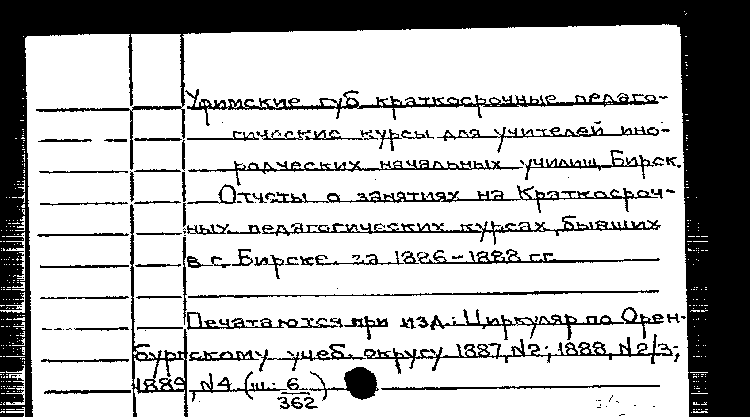 Уфимские губ краткосрочные педаго-
гические курсы для учителей ино-
родческих начальных училищ, Бирск.
Отчеты о занятиях на Краткосроч-
ных педагогических курсах, бывших
в г. Бирске. за 1886-1888 гг.
Печатаются при изд.: Циркуляр по Орен-
бургскому учеб. округу 1887, №2; 1888, №2/3;
1889, №4 (ш. 6/362)